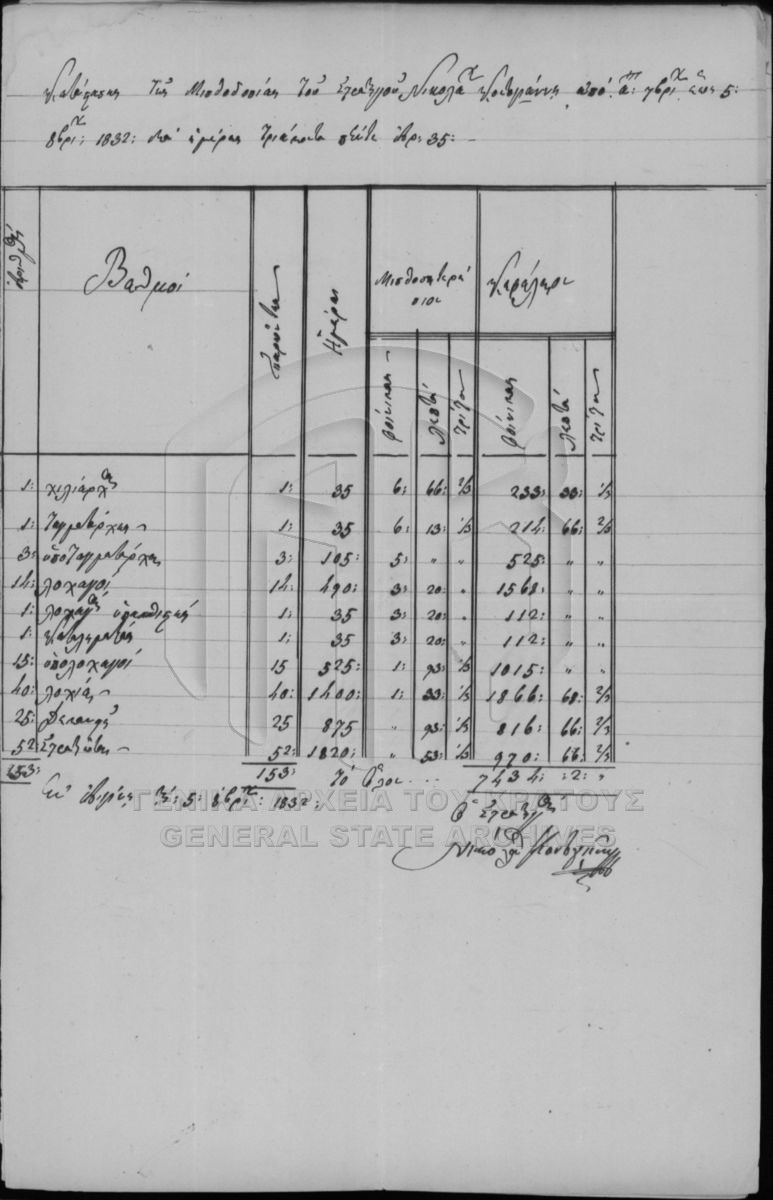 Κατάστασις τῆς Μισθοδοσίας τοῦ Στρατηγοῦ Νικολά ἀπό α: 7βρίου ἕως 5:
8βρίου: 1832: διά ἡμέρας τριάκοντα πέντε ἀρ: 35:
Βαθμοί Παρόντες Ἡμέραι Κεφάλαιον
φοίνικας λεπτά τρίτα φοίνικας λεπτά τρίτα
1: χιλίαρχος 1: 35 6: 66: 2/3 233: 33: 1/3
1: Ταγματάρχης 1: 35 6: 13: 1/3 214: 66: 2/3
3: ὑποταγματάρχης 3: 105: 5: " " 525: " "
14: λοχαγοί 14: 490: 3: 20: " 1568: " "
1: λοχαγός ὑπασπιστής 1: 35 3: 20: " 112: " "
1: 1: 35 3: 20: " 112: " "
15: ὑπολοχαγοί 15 525: 1: 93: 1/3 1015: " "
40: λοχίας 40: 1400: 1: 33: 1/3 1866: 66: 2/3
25: Δεκανεῖς 25 875 " 93: 1/3 816: 66: 2/3
52 Στρατιῶται 52: 1820: " 53: 1/3 970: 66: 2/3
153: 153: τό ὅλον ... 7434: :2: "
τῇ: 5: 8βρίου: 1832:
Ὁ Στρατηγός
Νικολά
ΓΕΝΙΚΑ ΑΡΧΕΙΑ ΤΟΥ ΚΡΑΤΟΥΣ
GENERAL STATE ARCHIVES